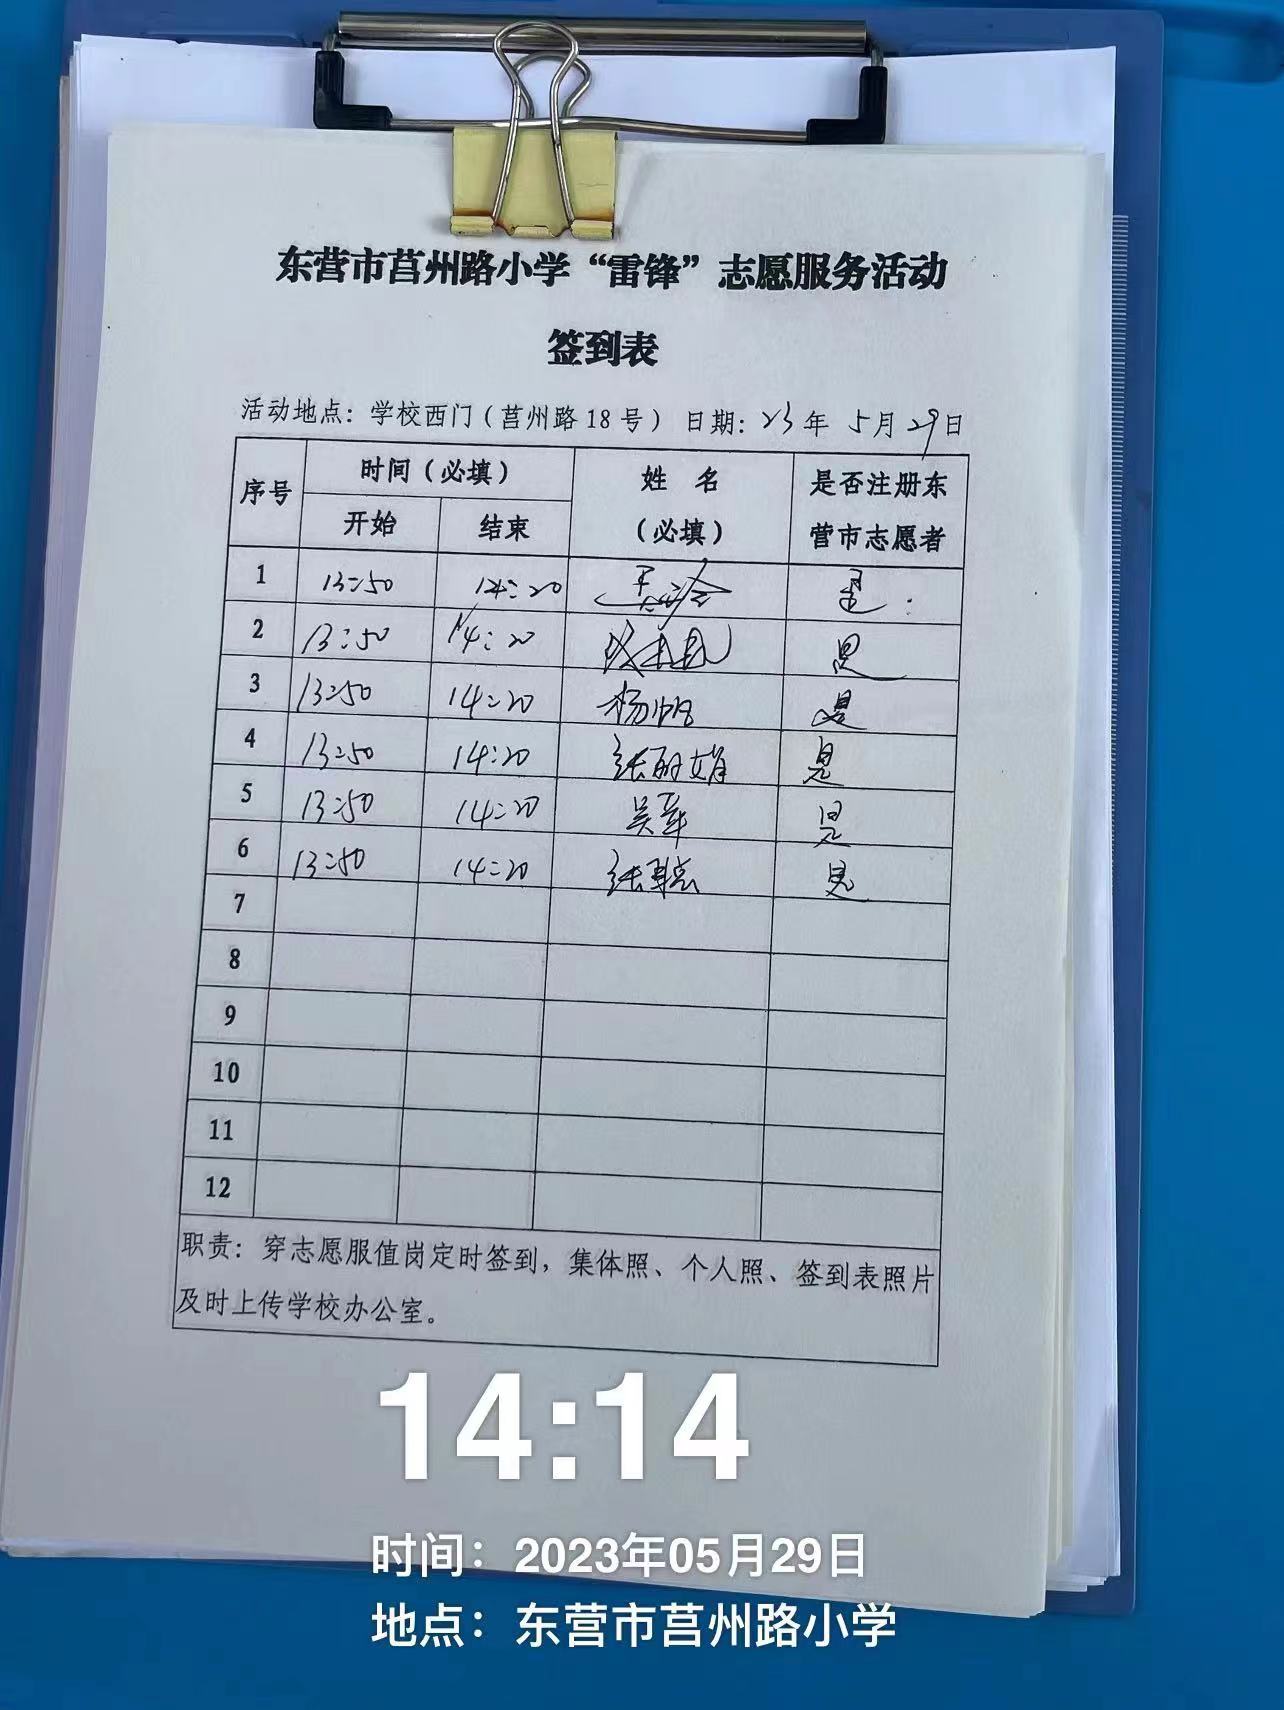 东营市莒州路小学“雷锋”志愿服务活动
签到表
活动地点：学校西门（莒州路18号） 日期：23年 5月29日
序号 时间（必填） 姓 名（必填） 是否注册东营市志愿者
开始 结束
1 13:50 14:20 是
2 13:50 14:20 是
3 13:50 14:20 杨帆 是
4 13:50 14:20 张丽娟 是
5 13:50 14:20 是
6 13:50 14:20 张 是
7
8
9
10
11
12
职责：穿志愿服值岗定时签到，集体照、个人照、签到表照片
及时上传学校办公室。
14:14
时间：2023年05月29日
地点：东营市莒州路小学